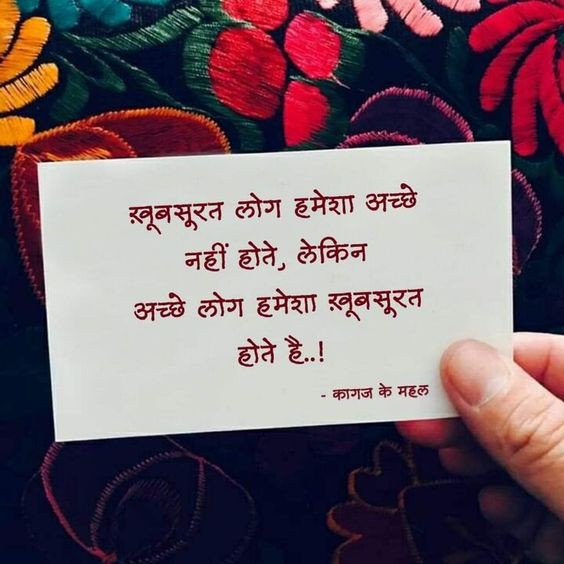 ख़ूबसूरत लोग हमेशा अच्छे
नहीं होते, लेकिन
अच्छे लोग हमेशा ख़ूबसूरत
होते है..!
- कागज के महल